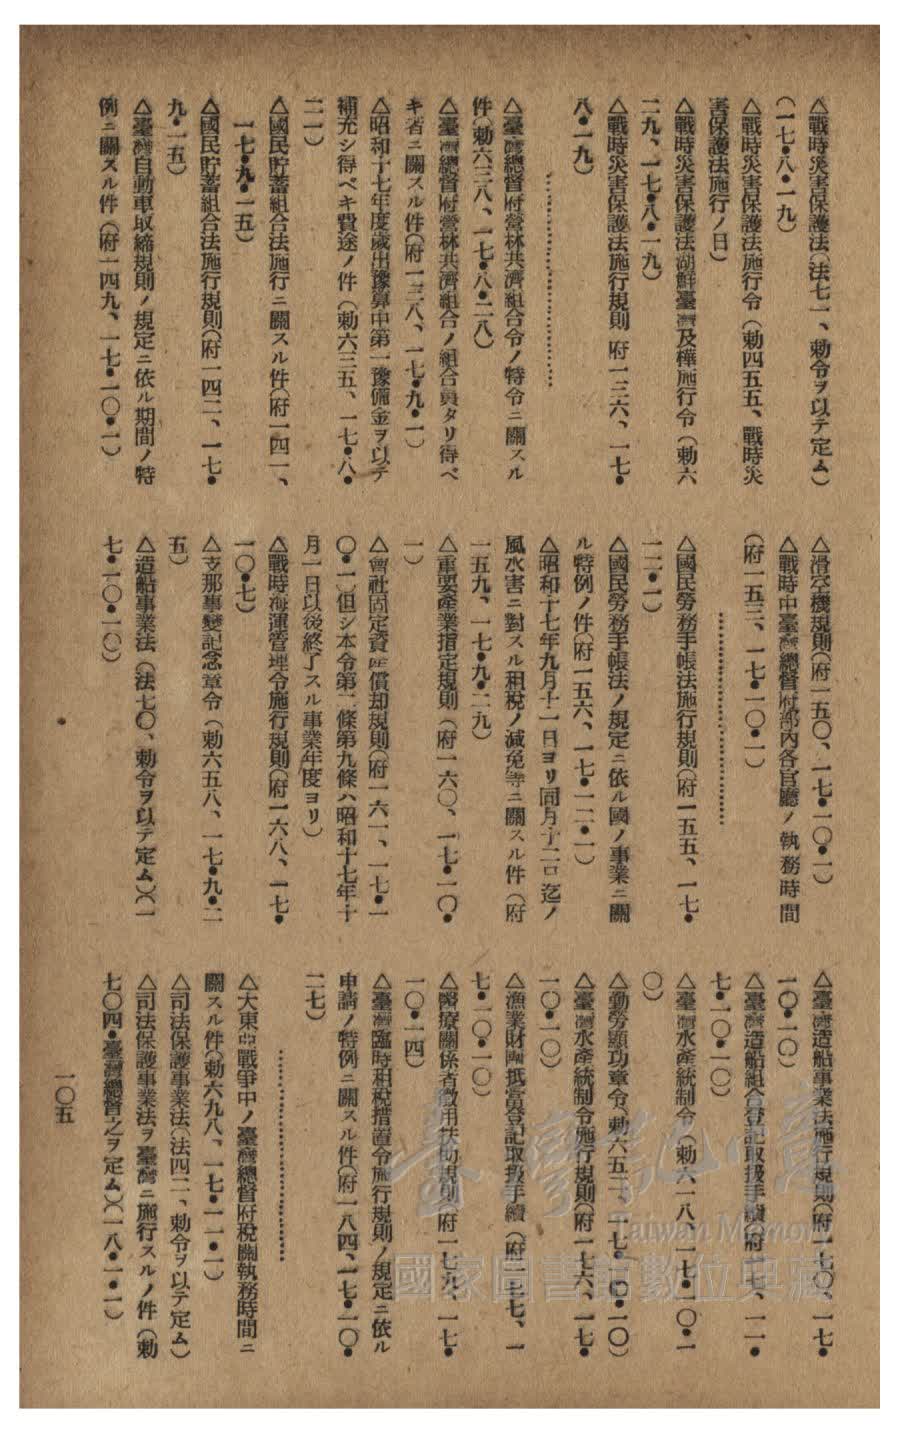 △戰時災害保護法(法七一、勅令ヲ以テ定ム)
(一七•八•一九)
△戰時災害保護法施行令(勅四五五、戰時災
害保護法施行ノ日)
△戰時災害保護法朝鮮臺灣及樺施行令(勅六
二九、一七•八•一九)
△戰時災害保護法施行規則 府一三六、一七•
八•一九)
△臺灣總督府營林共濟組合令ノ特令ニ關スル
件(勅六三八、一七•八•二八)
△臺灣總督府營林共濟組合ノ組合員タリ得ベ
キ者ニ關スル件(府一三八、一七•九•一)
△昭和十七年度歲出豫算中第一豫備金ヲ以テ
補充シ得ベキ費途ノ件(勅六三五、一七•八•
二一)
△國民貯蓄組合法施行ニ關スル件(府一四一、
一七•九•一五)
△國民貯蓄組合法施行規則(府一四二、一七•
九•一五)
△臺灣自動車取締規則ノ規定ニ依ル期間ノ特
例ニ關スル件(府一四九、一七•一〇•一)
△滑空機規則(府一五〇、一七•一〇•一)
△戰時中臺灣總督府部內各官廳ノ執務時間
(府一五三、一七•一〇•一)
△國民勞務手帳法施行規則(府一五五、一七•
一二•一)
△國民勞務手帳法ノ規定ニ依ル國ノ事業ニ關
ル特例ノ件(府一五六、一七•一二•一)
△昭和十七年九月十一日ヨリ同月十二日迄ノ
風水害ニ對スル租稅ノ減免等ニ關スル件(府
一五九、一七•九•二九)
△重要產業指定規則(府一六〇、一七•一〇•
一)
△會社固定資產償却規則(府一六一、一七•一
〇•一)但シ本令第二條第九條ハ昭和十七年十
月一日以後終了スル事業年度ヨリ)
△戰時海運管理令施行規則(府一六八、一七•
一〇•七)
△支那事變記念章令(勅六五八、一七•九•二
五)
△造船事業法(法七〇、勅令ヲ以テ定ム)(一
七•一〇•一〇)
△臺灣造船事業法施行規則(府一七〇、一七•
一〇•一〇)
△臺灣造船組合登記取扱手續(府一七、一一•
七•一〇•一〇)
△臺灣水產統制令(勅六一八、一七•一〇•一
〇)
△勤勞顯功章令(勅六五二、一七•一〇•一〇)
△臺灣水產統制令施行規則(府一七六、一七•
一〇•一〇)
△漁業財團抵當登記取扱手續(府一七七、一
七•一〇•一〇)
△醫療關係者徵用扶助規則(府一七九、一七•
一〇•一四)
△臺灣臨時租稅措置令施行規則ノ規定ニ依ル
申請ノ特例ニ關スル件(府一八四、一七•一〇•
二七)
△大東亞戰爭中ノ臺灣總督府稅關執務時間ニ
關スル件(勅六九八、一七•一一•一)
△司法保護事業法(法四二、勅令ヲ以テ定ム)
△司法保護事業法ヲ臺灣ニ施行スルノ件(勅
七〇四•臺灣總督之ヲ定ム)(一八•一•一)
一〇五
臺灣記憶
Taiwan Memory
國家圖書館數位典藏